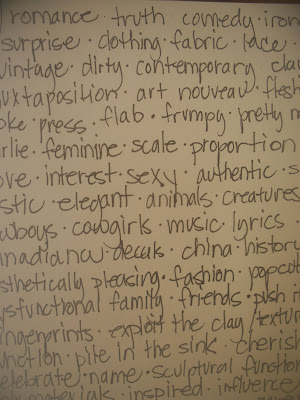 romance · truth comedy · iron
surprise · clothing · fabric · lace ·
vintage · dirty · contemporary clay
uxtaposition · art nouveau · flesh
oke · press · flab · frumpy · pretty m
rlie · feminine · scale · proportion
ove · interest · sexy · authentic · s
stic · elegant · animals · creatures
wboys · cowgirls · music · lyrics
nadiana · decals · china · history
sthetically pleasing · fashion · popcult
ysfunctional family · friends · push it
ingerprints · exploit the clay / textur
unction · pile in the sink · cherish
elebrate · name · sculptural function
materials · inspired · influence